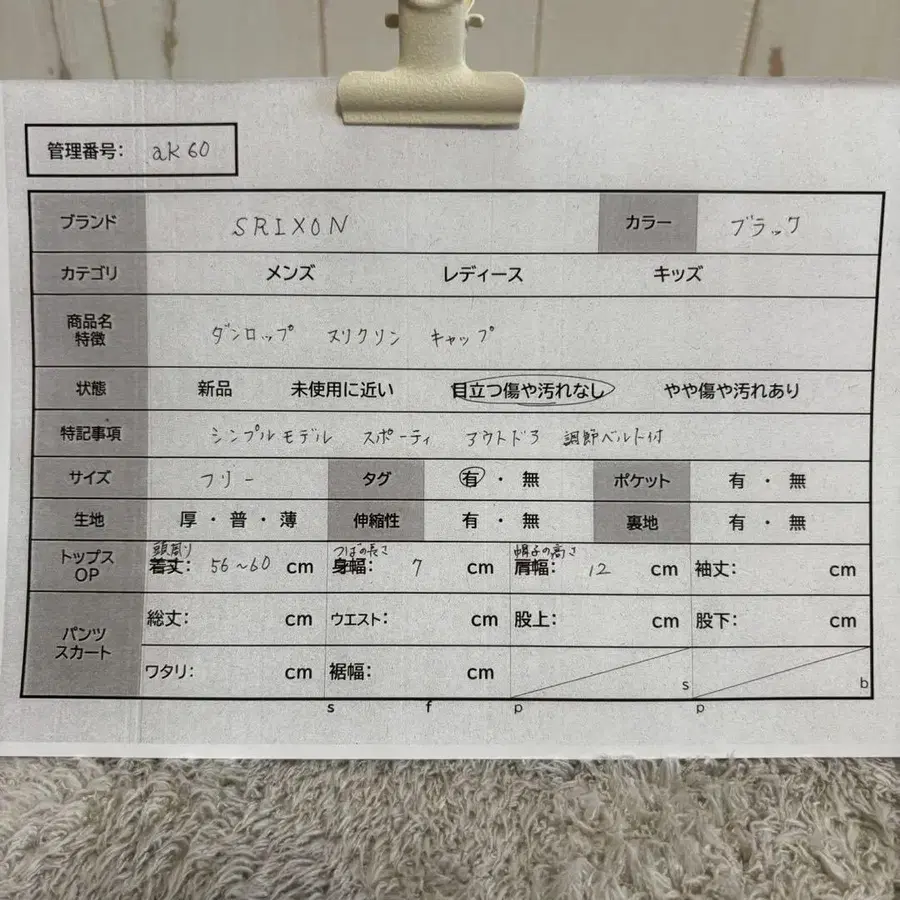 管理番号: ak60
ブランド SRIXON カラー ブラック
カテゴリ メンズ レディース キッズ
商品名 特徴 ダンロップ スリクソン キャップ
状態 新品 未使用に近い 目立つ傷や汚れなし やや傷や汚れあり
特記事項 シンプルモデル スポーティ アウトドア 調節ベルト付
サイズ フリー タグ 有・無 ポケット 有・無
生地 厚・普・薄 伸縮性 有・無 裏地 有・無
頭周り つばの長さ 帽子の高さ
トップス OP 着丈: 56~60 cm 身幅: 7 cm 肩幅: 12 cm 袖丈: cm
パンツ スカート 総丈: cm ウエスト: cm 股上: cm 股下: cm
ワタリ: cm 裾幅: cm s b
s f p p